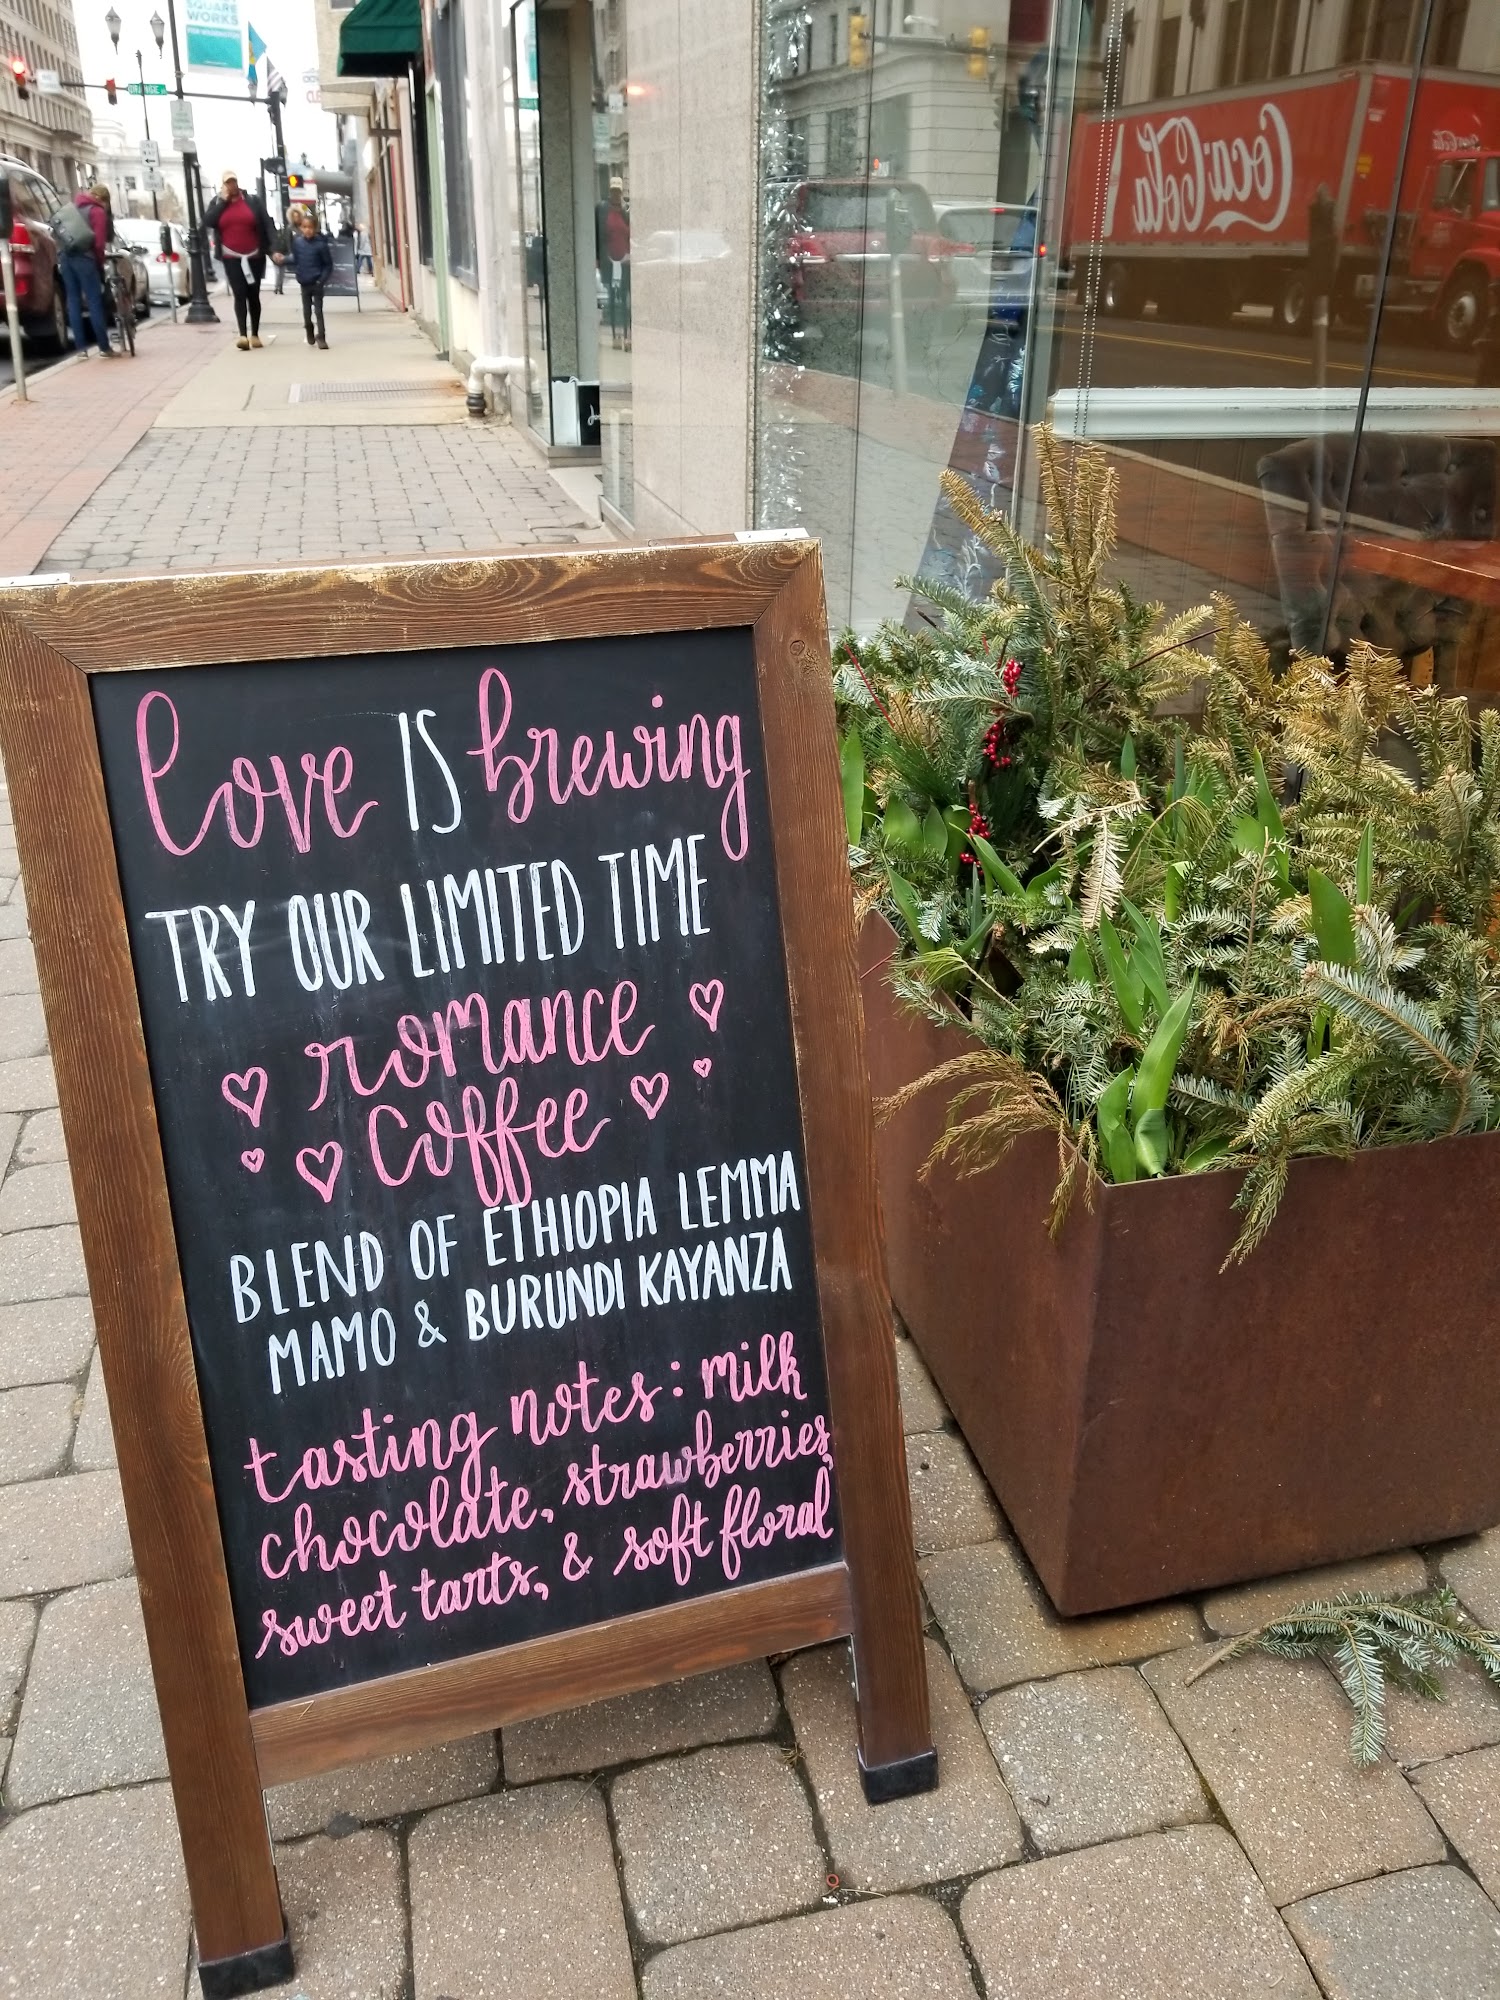 SQUARE
WORKS
ORANGE
Coca-Cola
love IS brewing
TRY OUR LIMITED TIME
romance
coffee
BLEND OF ETHIOPIA LEMMA
MAMO & BURUNDI KAYANZA
tasting notes: milk
chocolate, strawberries,
sweet tarts, & soft floral